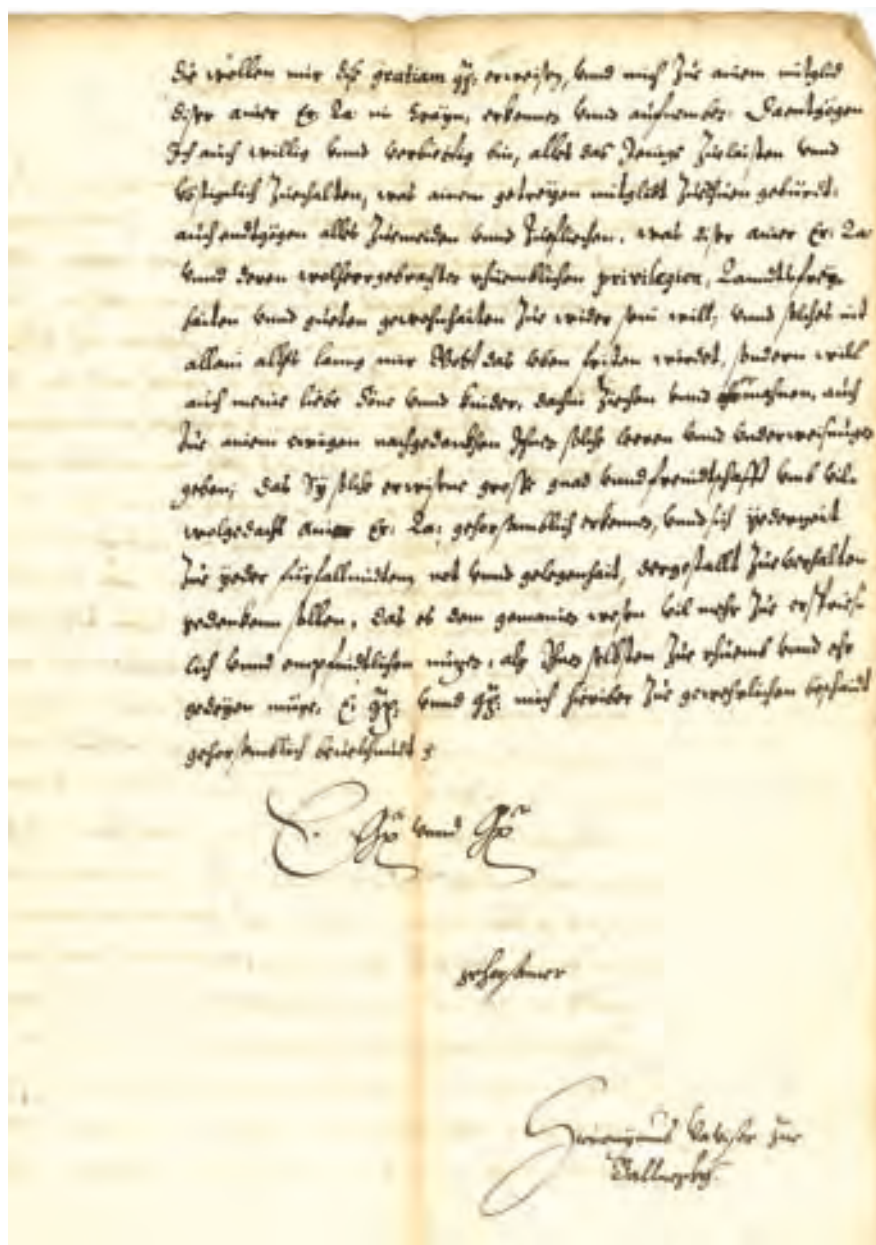 die wöllen mir dise gratiam gn: erweisen, vnnd mich zue ainem mitglid
diser ainer Er: La: in Crayn, erkennen vnnd aufnemben: Daentgögen
Ich auch willig vnnd vrbiettig bin, alles das Jenige zuelaisten vnnd
vöstigelich zuehalten, was ainem getreyen mitglidt zuethuen gebürdt:
auch endtgögen alles zuemeiden vnnd zuefliechen, was diser ainer Er: La:
vnnd deren wolheergebrachten rhuemblichen privilegien, Lanndtsfrey
haiten vnnd gueten gewohnhaiten zue wider sein will, vnnd solches nit
allain alls lanng mir Gott das leben fristen würdet, sondern will
auch meine liebe Söne vnnd kinder, dahin ziechen vnnd ermahnen, auch
zue ainem ewigen nachgedenckhen Ihnen solche leeren vnnd vnderweisungen
geben, das Sy solche erwisne grosse gnad vnnd freindtschafft vmb vil-
wolgedacht ainer Er: La: gehorsamblich erkennen, vnnd sich yederzeit
zue yeder fürfallendten not vnnd gelegenhait, dergestallt zueverhalten
gedenkhen sollen, das es dem gemainen wesen vil mehr zue ersprieß-
lich vnnd empfindtlichen nuzen, als Ihnen selbsten zue rhuemb vnnd ehr
gedeyen müge. E: Gn: vnnd Gn: mich hierüber zue gewehrlichen beschaidt
gehorsamblich bevelhendt
E. Gn vnnd Gn
gehorsamer
Hieronymus zur